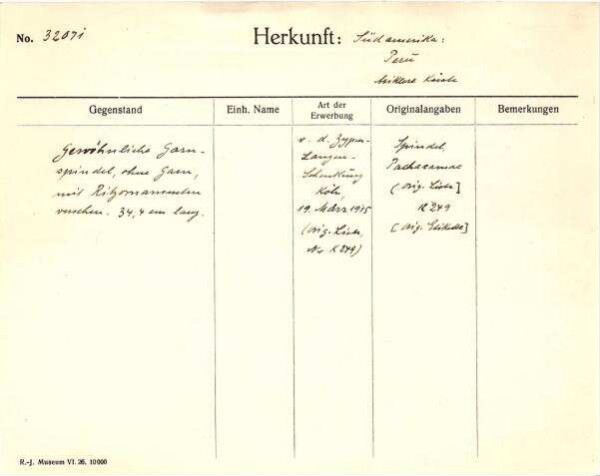 No. 32071
Herkunft: Südamerika:
Peru
mittlere Küste
Gegenstand
Einh. Name
Art der Erwerbung
Originalangaben
Bemerkungen
Gewöhnliche Garn-
spindel, ohne Garn,
mit Ritzornamenten
versehen. 34,4 cm lang.
v. d. Zypen-
Langen-
Schenkung
Köln,
19. März 1915
(Orig. Liste,
No K 249)
Spindel,
Pachacamac
[Orig. Liste]
K 249
[Orig. Etikette]
R.-J. Museum VI. 26. 10000